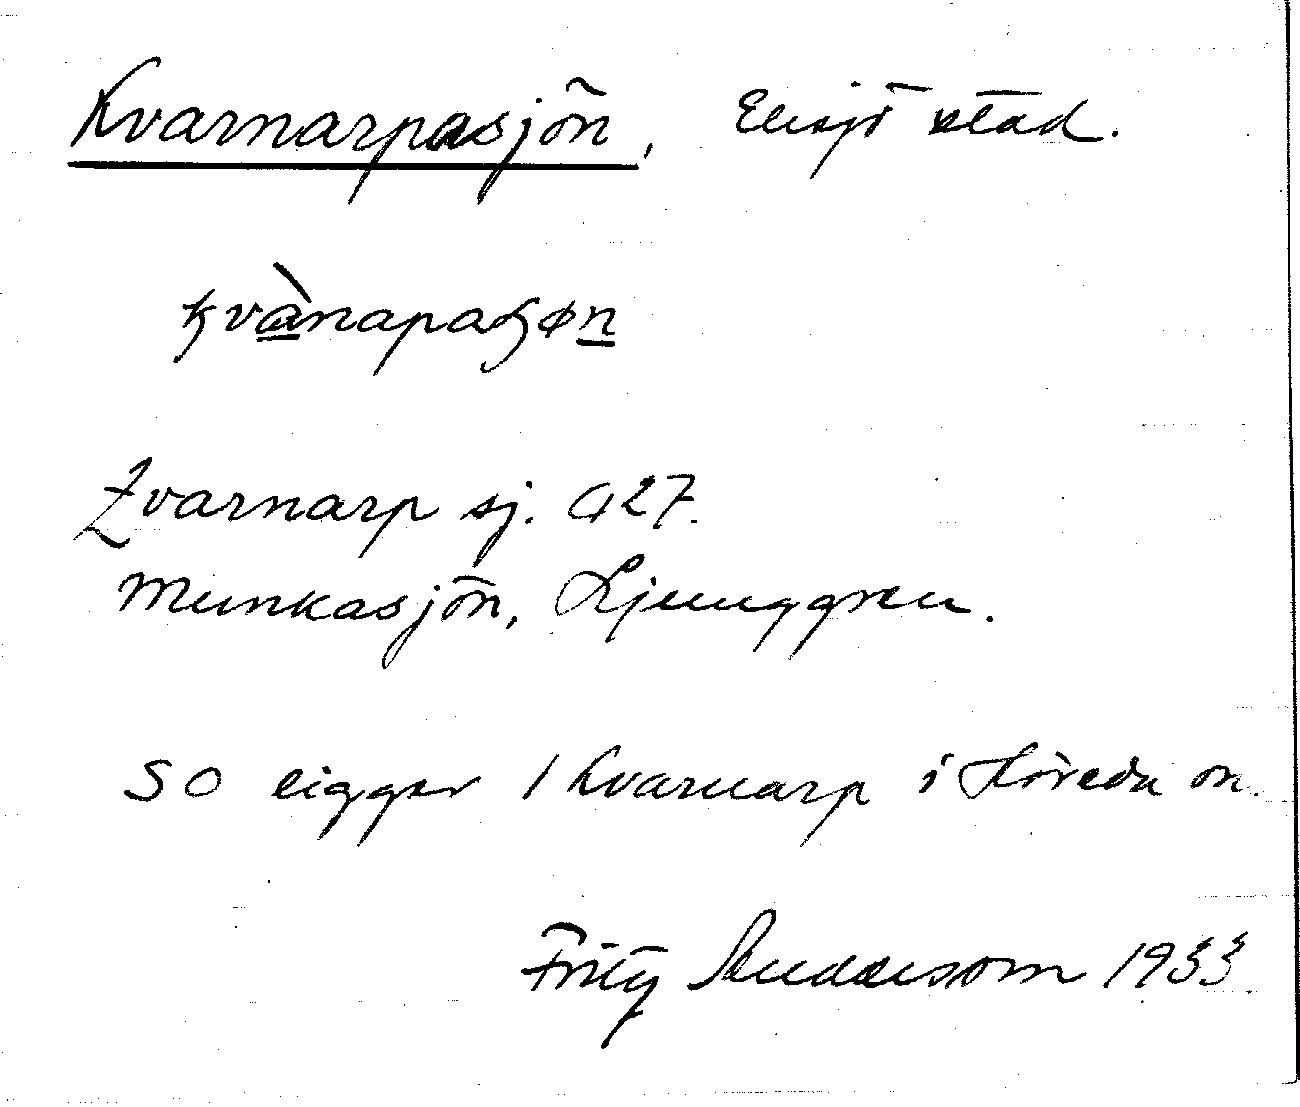 Kvarnarpasjön, Eksjö stad.
kvànapaʂøn
Kvarnarp sj. G 27.
Munkasjön, Ljunggren.
SO ligger 1 Kvarnarp i Höreda sn.
Fritz Andersson 1933